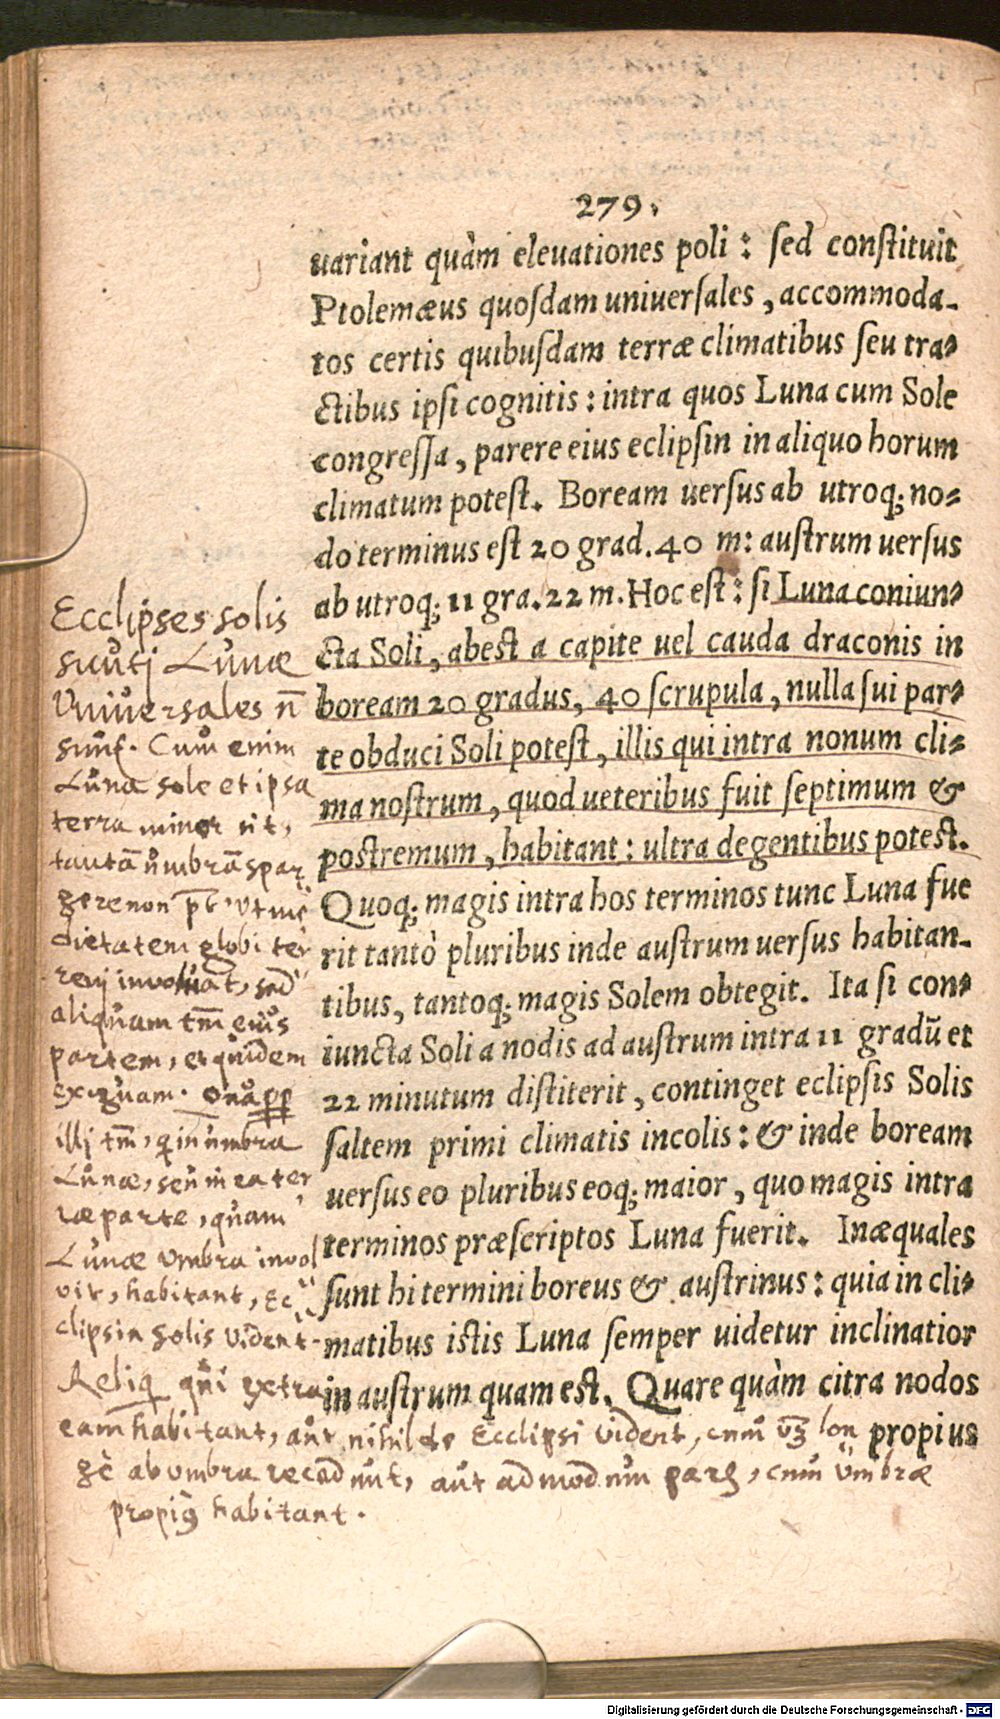 279.
uariant quàm eleuationes poli : sed constituit
Ptolemæus quosdam uniuersales , accommoda-
tos certis quibusdam terræ climatibus seu tra-
ctibus ipsi cognitis : intra quos Luna cum Sole
congressa , parere eius eclipsin in aliquo horum
climatum potest. Boream uersus ab utroq; no-
do terminus est 20 grad. 40 m: austrum uersus
ab utroq; 11 gra. 22 m. Hoc est : si Luna coniun-
cta Soli , abest a capite uel cauda draconis in
boream 20 gradus, 40 scrupula , nulla sui par-
te obduci Soli potest , illis qui intra nonum cli-
ma nostrum , quod ueteribus fuit septimum &
postremum , habitant : ultra degentibus potest.
Quoq; magis intra hos terminos tunc Luna fue
rit tantò pluribus inde austrum uersus habitan-
tibus, tantoq; magis Solem obtegit. Ita si con-
iuncta Soli a nodis ad austrum intra 11 gradũ et
22 minutum distiterit , continget eclipsis Solis
saltem primi climatis incolis : & inde boream
uersus eo pluribus eoq; maior , quo magis intra
terminos præscriptos Luna fuerit. Inæquales
sunt hi termini boreus & austrinus : quia in cli-
matibus istis Luna semper uidetur inclinatior
in austrum quam est. Quare quàm citra nodos
propius
Ecclipses solis
sicuti Lunæ
Vniuersales n̄
sunt. Cum enim
Luna sole et ipsa
terra minor sit,
tantā umbrā spar
gere non pt̄, vt me
dietatem globi ter
reni involuat, sed
aliquam tm̄ eius
partem, et quidem
exiguam.
illi tm̄, q in umbra
Lunæ, seu in ea ter
ræ parte, quam
Lunæ vmbra invol
vit, habitant, Ec
clipsin solis vident.
Reliq qui extra
eam habitant, aut nihil de Ecclipsi vident, cum lon
gè ab umbra recedunt, aut admodum parũ, cum vmbræ
propiꝰ habitant.
Digitalisierung gefördert durch die Deutsche Forschungsgemeinschaft - DFG